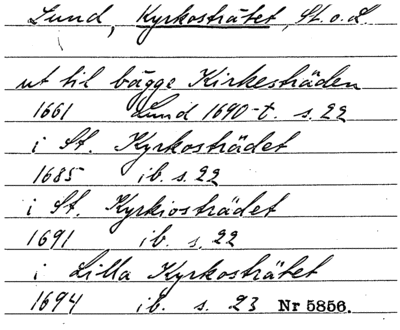 Lund, Kyrkosträtet, St. o. L.
ut til bägge Kirkesträden
1661 Lund 1690-t. s. 22
i St. Kyrkosträdet
1685 ib. s. 22
i St. Kyrkiosträdet
1691 ib. s. 22
i Lilla Kyrkosträtet
1694 ib. s. 23 Nr 5856.